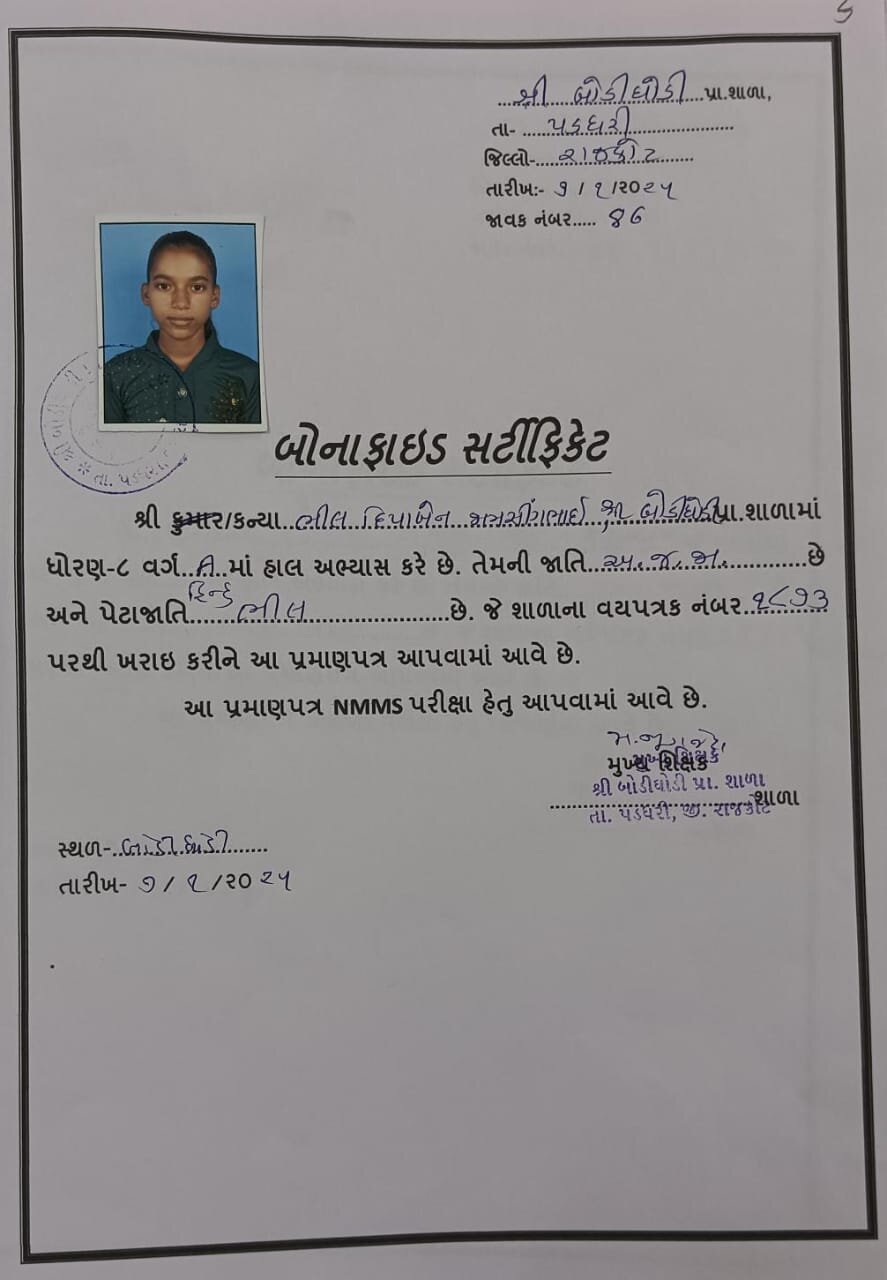 શ્રી બોડીઘોડી પ્રા.શાળા,
તા- પડધરી
જિલ્લો- રાજકોટ
તારીખ:- ૭ / ૧ /૨૦૨૫
જાવક નંબર..... ૪૬
તા. પડધરી
બોનાફાઇડ સર્ટીફિકેટ
શ્રી કુમાર/કન્યા..ભીલ દિપાબેન શ્રી બોડીઘોડી પ્રા.શાળામાં
ધોરણ-૮ વર્ગ..A..માં હાલ અભ્યાસ કરે છે. તેમની જાતિ...અ.જ.જા.............છે
અને પેટાજાતિ હિન્દુ ભીલ છે. જે શાળાના વયપત્રક નંબર..૧૮૭૩
પરથી ખરાઇ કરીને આ પ્રમાણપત્ર આપવામાં આવે છે.
આ પ્રમાણપત્ર NMMS પરીક્ષા હેતુ આપવામાં આવે છે.
મુખ્ય શિક્ષક
મુખ્ય શિક્ષક
શ્રી બોડીઘોડી પ્રા. શાળા
શાળા
તા. પડધરી, જી. રાજકોટ
સ્થળ-..બોડીઘોડી.......
તારીખ- ૭ / ૧ /૨૦૨૫